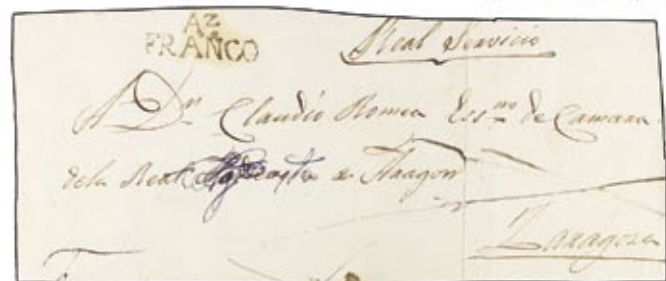 AZ
FRANCO
Real Servicio
A Dn Claudio Romea Essno de Camara
de la Real de Aragon
Zaragoza